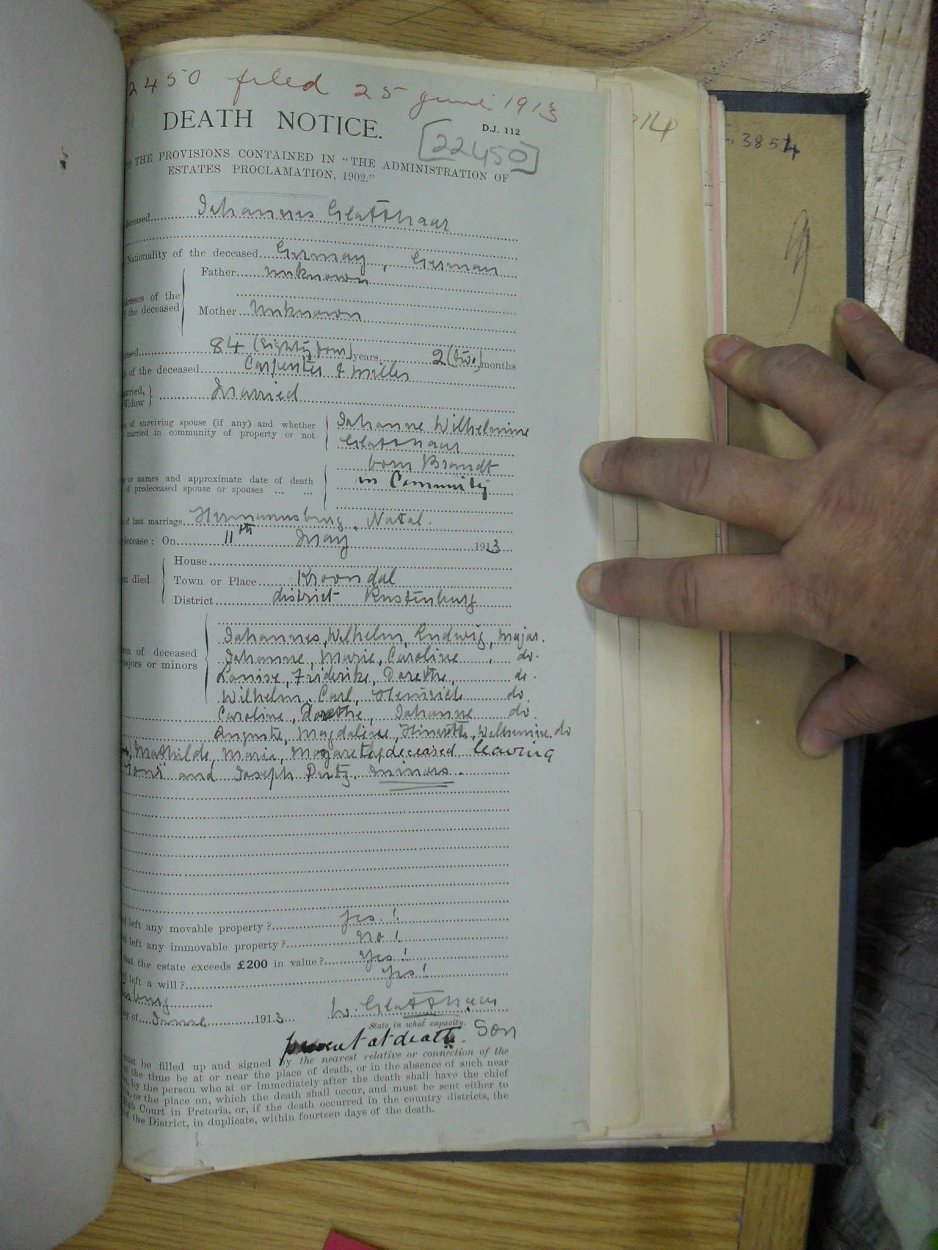 2450 filed 25 June 1913
DEATH NOTICE.
D.J. 112
[22450]
THE PROVISIONS CONTAINED IN "THE ADMINISTRATION OF
ESTATES PROCLAMATION, 1902."
deceased Johannes Glatthaar
Nationality of the deceased Germany, German
Father unknown
resses of the
the deceased
Mother Unknown
84 (Eighty four) years 2 (two) months
of the deceased Carpenter & Miller
arried,
Widow } Married
of surviving spouse (if any) and whether
married in community of property or not
Johanne Wilhelmine
Glatthaar
born Brandt
or names and approximate date of death
of predeceased spouse or spouses
in Community
of last marriage Hermannsburg, Natal.
decease: On 11th May 1913
House
died Town or Place Kroondal
District district Rustenburg
en of deceased
majors or minors
Johannes, Wilhelm, Ludwig, major.
Johanne, Marie, Caroline, do.
Louise, Friderike, Dorethe, do.
Wilhelm, Carl, Heinrich do
Caroline, Dorethe, Johanne do.
Auguste, Magdaline, Wilhelmine do
Mathilde, Maria, Margarethe, deceased leaving
and Joseph minors.
left any movable property? Yes!
left any immovable property? No!
hat the estate exceeds £200 in value? Yes!
left a will? Yes!
y of June 1913
W. Glatthaar
State in what capacity.
present at death. Son
must be filled up and signed by the nearest relative or connection of the
at the time be at or near the place of death, or in the absence of such near
by the person who at or immediately after the death shall have the chief
or the place on, which the death shall occur, and must be sent either to
Court in Pretoria, or, if the death occurred in the country districts, the
of the District, in duplicate, within fourteen days of the death.
314
3854